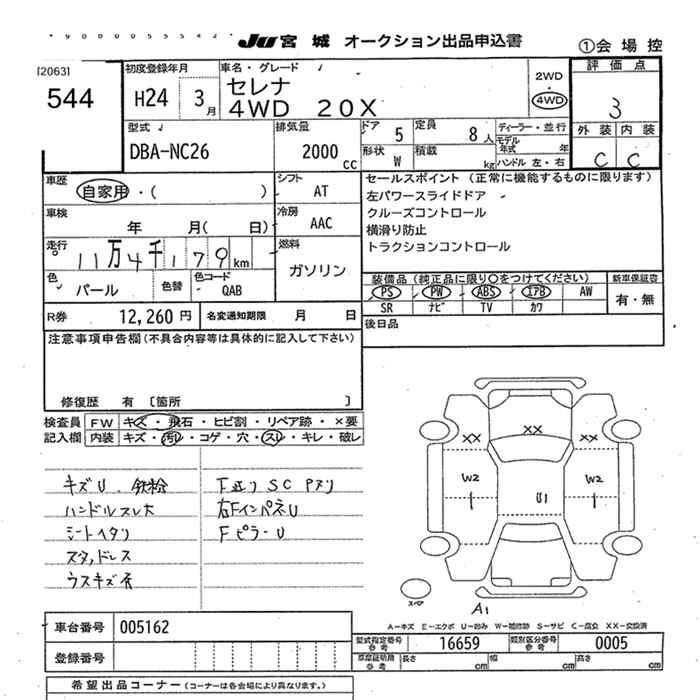 JU 宮城 オークション出品申込書
①会場控
[2063]
544
初度登録年月
H24 3月
車名・グレード
セレナ
4WD 20X
2WD
4WD
評価点
3
外装 内装
C C
型式
DBA-NC26
排気量
2000 cc
ドア 5
定員 8人
ディーラー・並行
モデル年式 年
形状 W
積載 kg
ハンドル 左・右
車歴
自家用・( )
シフト
AT
セールスポイント (正常に機能するものに限ります)
左パワースライドドア
クルーズコントロール
横滑り防止
トラクションコントロール
車検
年 月( 日)
冷房
AAC
走行
11万4千179km
燃料
ガソリン
色
パール
色替
色コード
QAB
装備品(純正品に限り○をつけてください)
新車保証書
PS PW ABS エアB AW
有・無
SR ナビ TV カワ
R券 12,260円
名変通知期限 月 日
後日品
注意事項申告欄(不具合内容等は具体的に記入して下さい)
修復歴 有 [箇所 ]
検査員 FW キズ・飛石・ヒビ割・リペア跡・×要
記入欄 内装 キズ・汚れ・コゲ・穴・スレ・キレ・破レ
キズU 鉄粉
ハンドルスレ大
シートヘタリ
スタッドレス
ウスキズ有
F廻り SC Pヌリ
右FインパネU
FピラーU
XX
XX XX
W2 W2
1 U1 1
スペア
A1
A-キズ E-エクボ U-凹み W-補修跡 S-サビ C-腐食 XX-交換済
車台番号 005162
型式指定番号 参考 16659
類別区分番号 参考 0005
登録番号
車庫証明用 参考 長さ cm 幅 cm 高さ cm
希望出品コーナー (コーナーは各会場により異なります。)